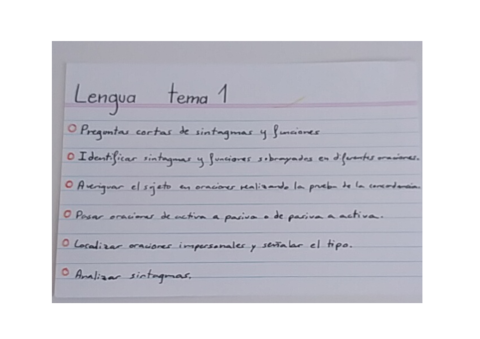 Lengua tema 1
Preguntas cortas de sintagmas y funciones
Identificar sintagmas y funciones subrayados en diferentes oraciones.
Averiguar el sujeto en oraciones realizando la prueba de la concordancia.
Pasar oraciones de activa a pasiva o de pasiva a activa.
Localizar oraciones impersonales y señalar el tipo.
Analizar sintagmas.